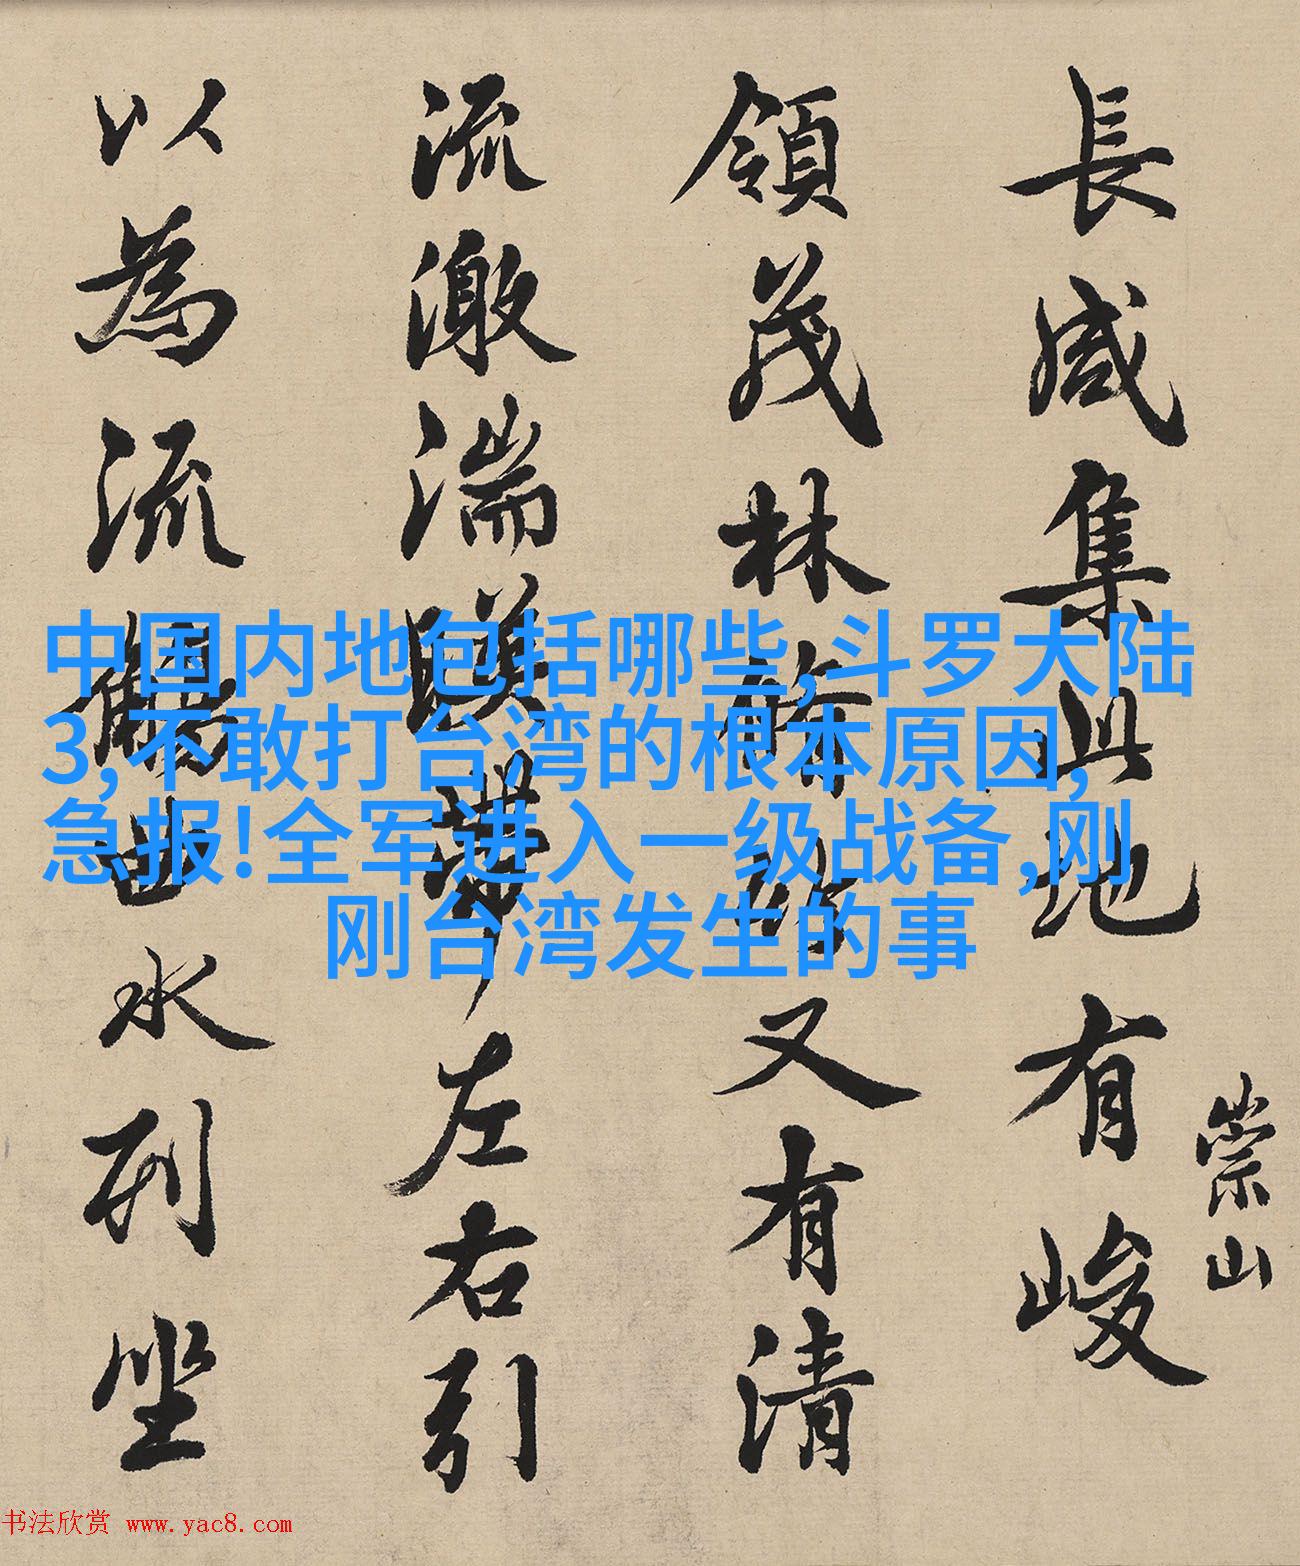 長咸集此地有峻
崇山
領茂林脩竹又有清
流激湍暎帶左右引
以為流觴曲水列坐
中国内地包括哪些,斗罗大陆
3,不敢打台湾的根本原因,
急报!全军进入一级战备,刚
刚台湾发生的事
书法欣赏 www.yac8.com